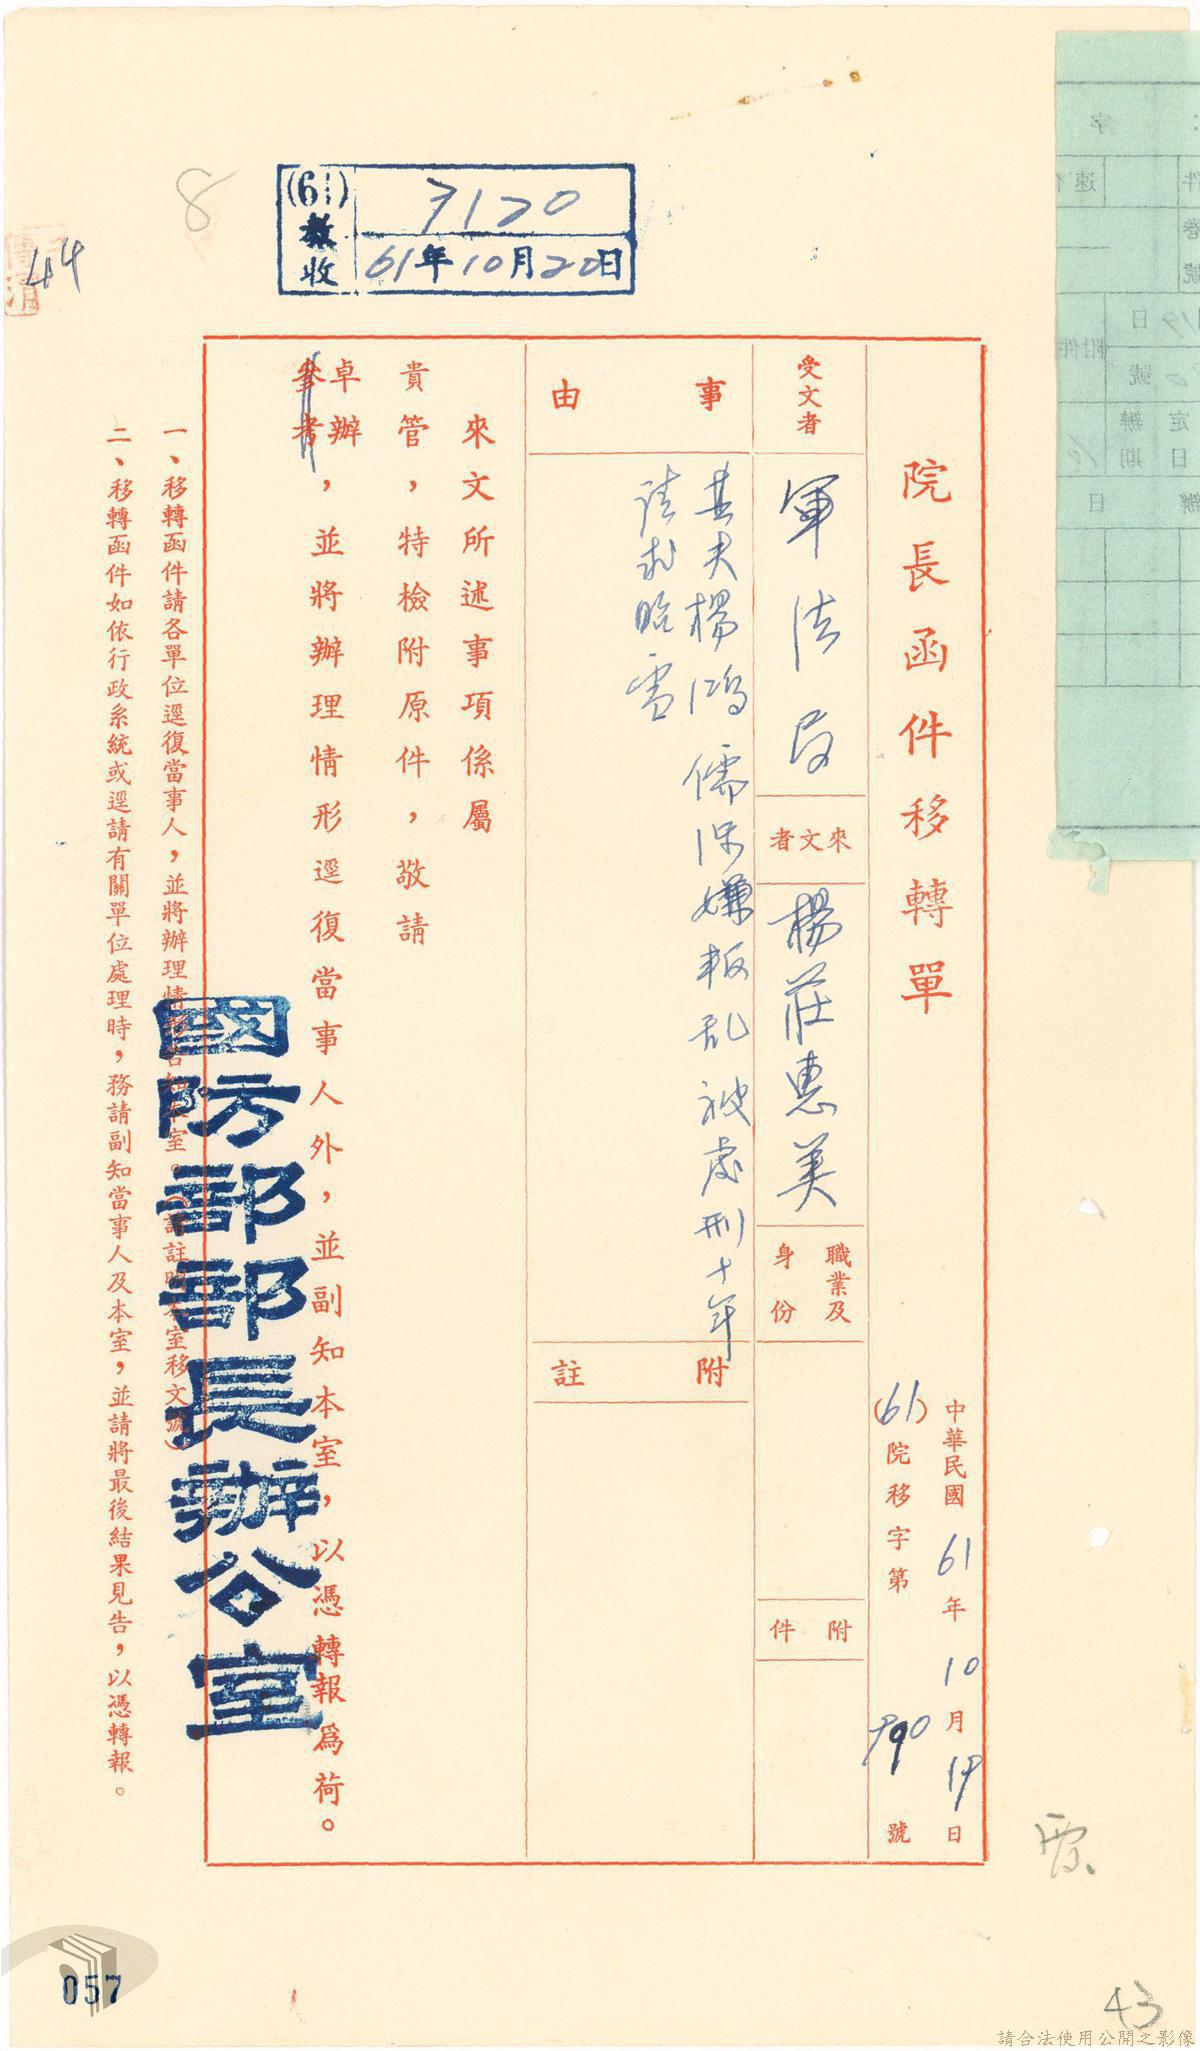 院長函件移轉單
中華民國61年10月19日
(61)院移字第790號
受文者
軍法局
來文者
楊莊惠美
職業及
身份
附件
事由
其夫楊鴻儒涉嫌叛乱被處刑十年
請求昭雪
附註
來文所述事項係屬
貴管，特檢附原件，敬請
卓辦
參考，並將辦理情形逕復當事人外，並副知本室，以憑轉報為荷。
國防部部長辦公室
一、移轉函件請各單位逕復當事人，並將辦理情形告知本室。（請註明本室移文號）
二、移轉函件如依行政系統或逕請有關單位處理時，務請副知當事人及本室，並請將最後結果見告，以憑轉報。
(61)
收
7120
61年10月20日
8
44
43
057
請合法使用公開之影像